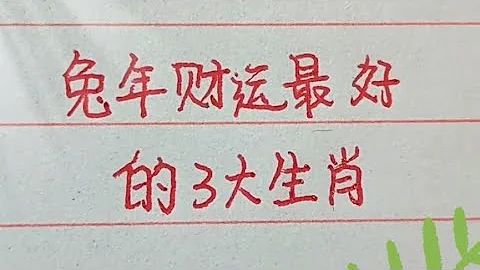 兔年财运最好
的3大生肖